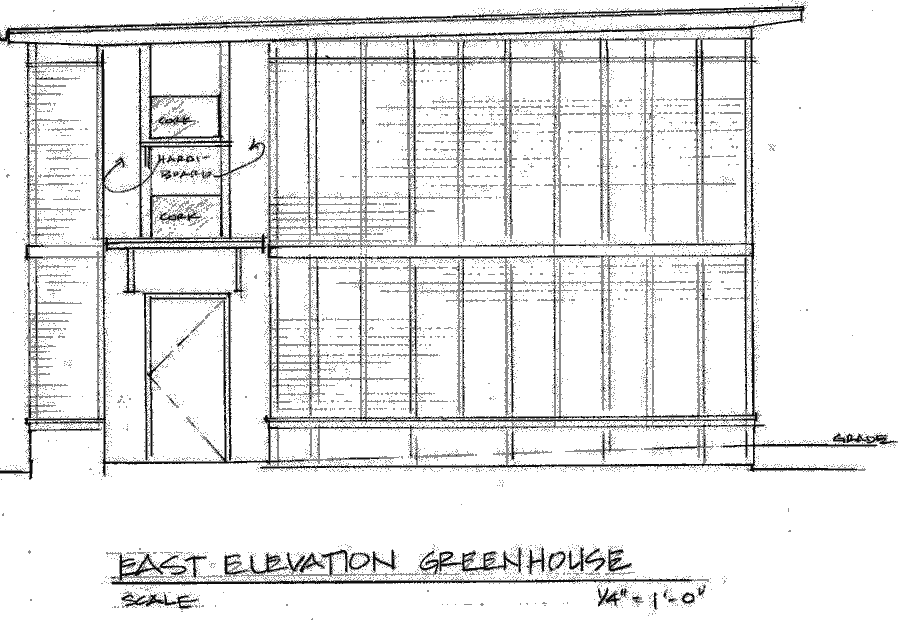 CORK
HARDI-
BOARD
CORK
GRADE
EAST ELEVATION GREENHOUSE
SCALE 1/4" = 1'-0"